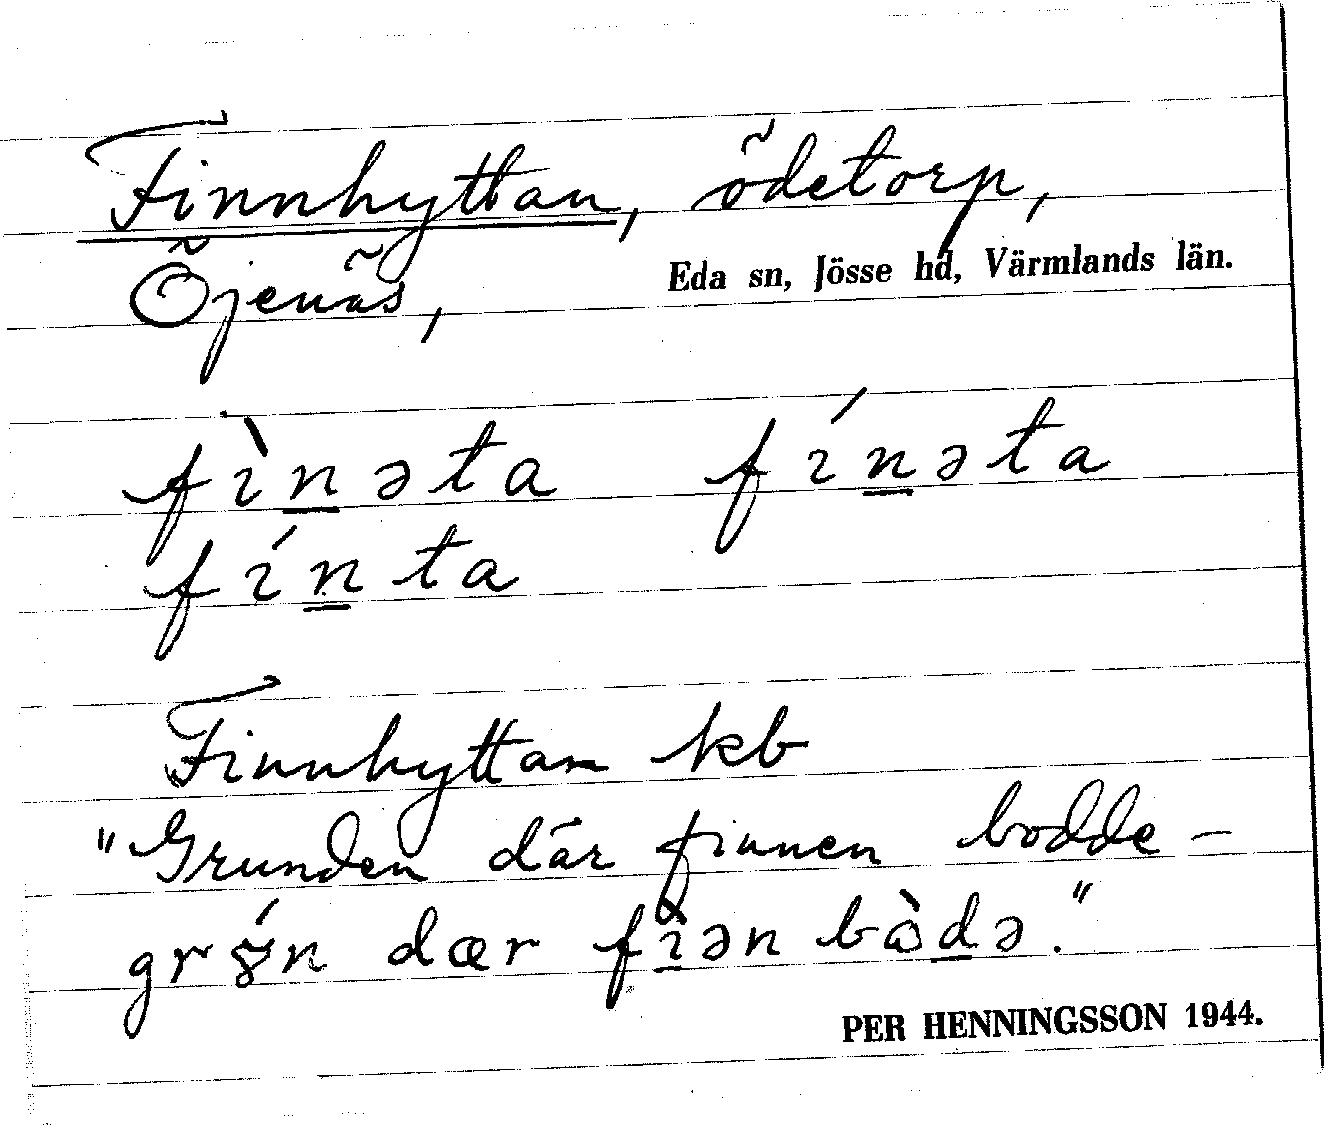 Finnhyttan, ödetorp,
Öjenäs, Eda sn, Jösse hd, Värmlands län.
fìn̲əta fín̲əta
fín̲ta
Finnhyttan kb
"Grunden där finnen bodde –
grn dær fì̲ən bòd̲ə."
PER HENNINGSSON 1944.